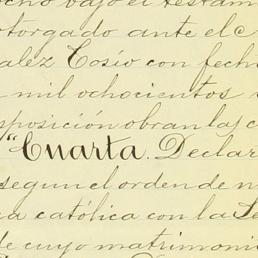 ocho bajo el testam
otorgado ante el
alez Cosío con fech
mil ochocientos
sposición obran las c
"Cuarta. Declar
segun el orden de n
ca católica con la Se
de cuyo matrimoni